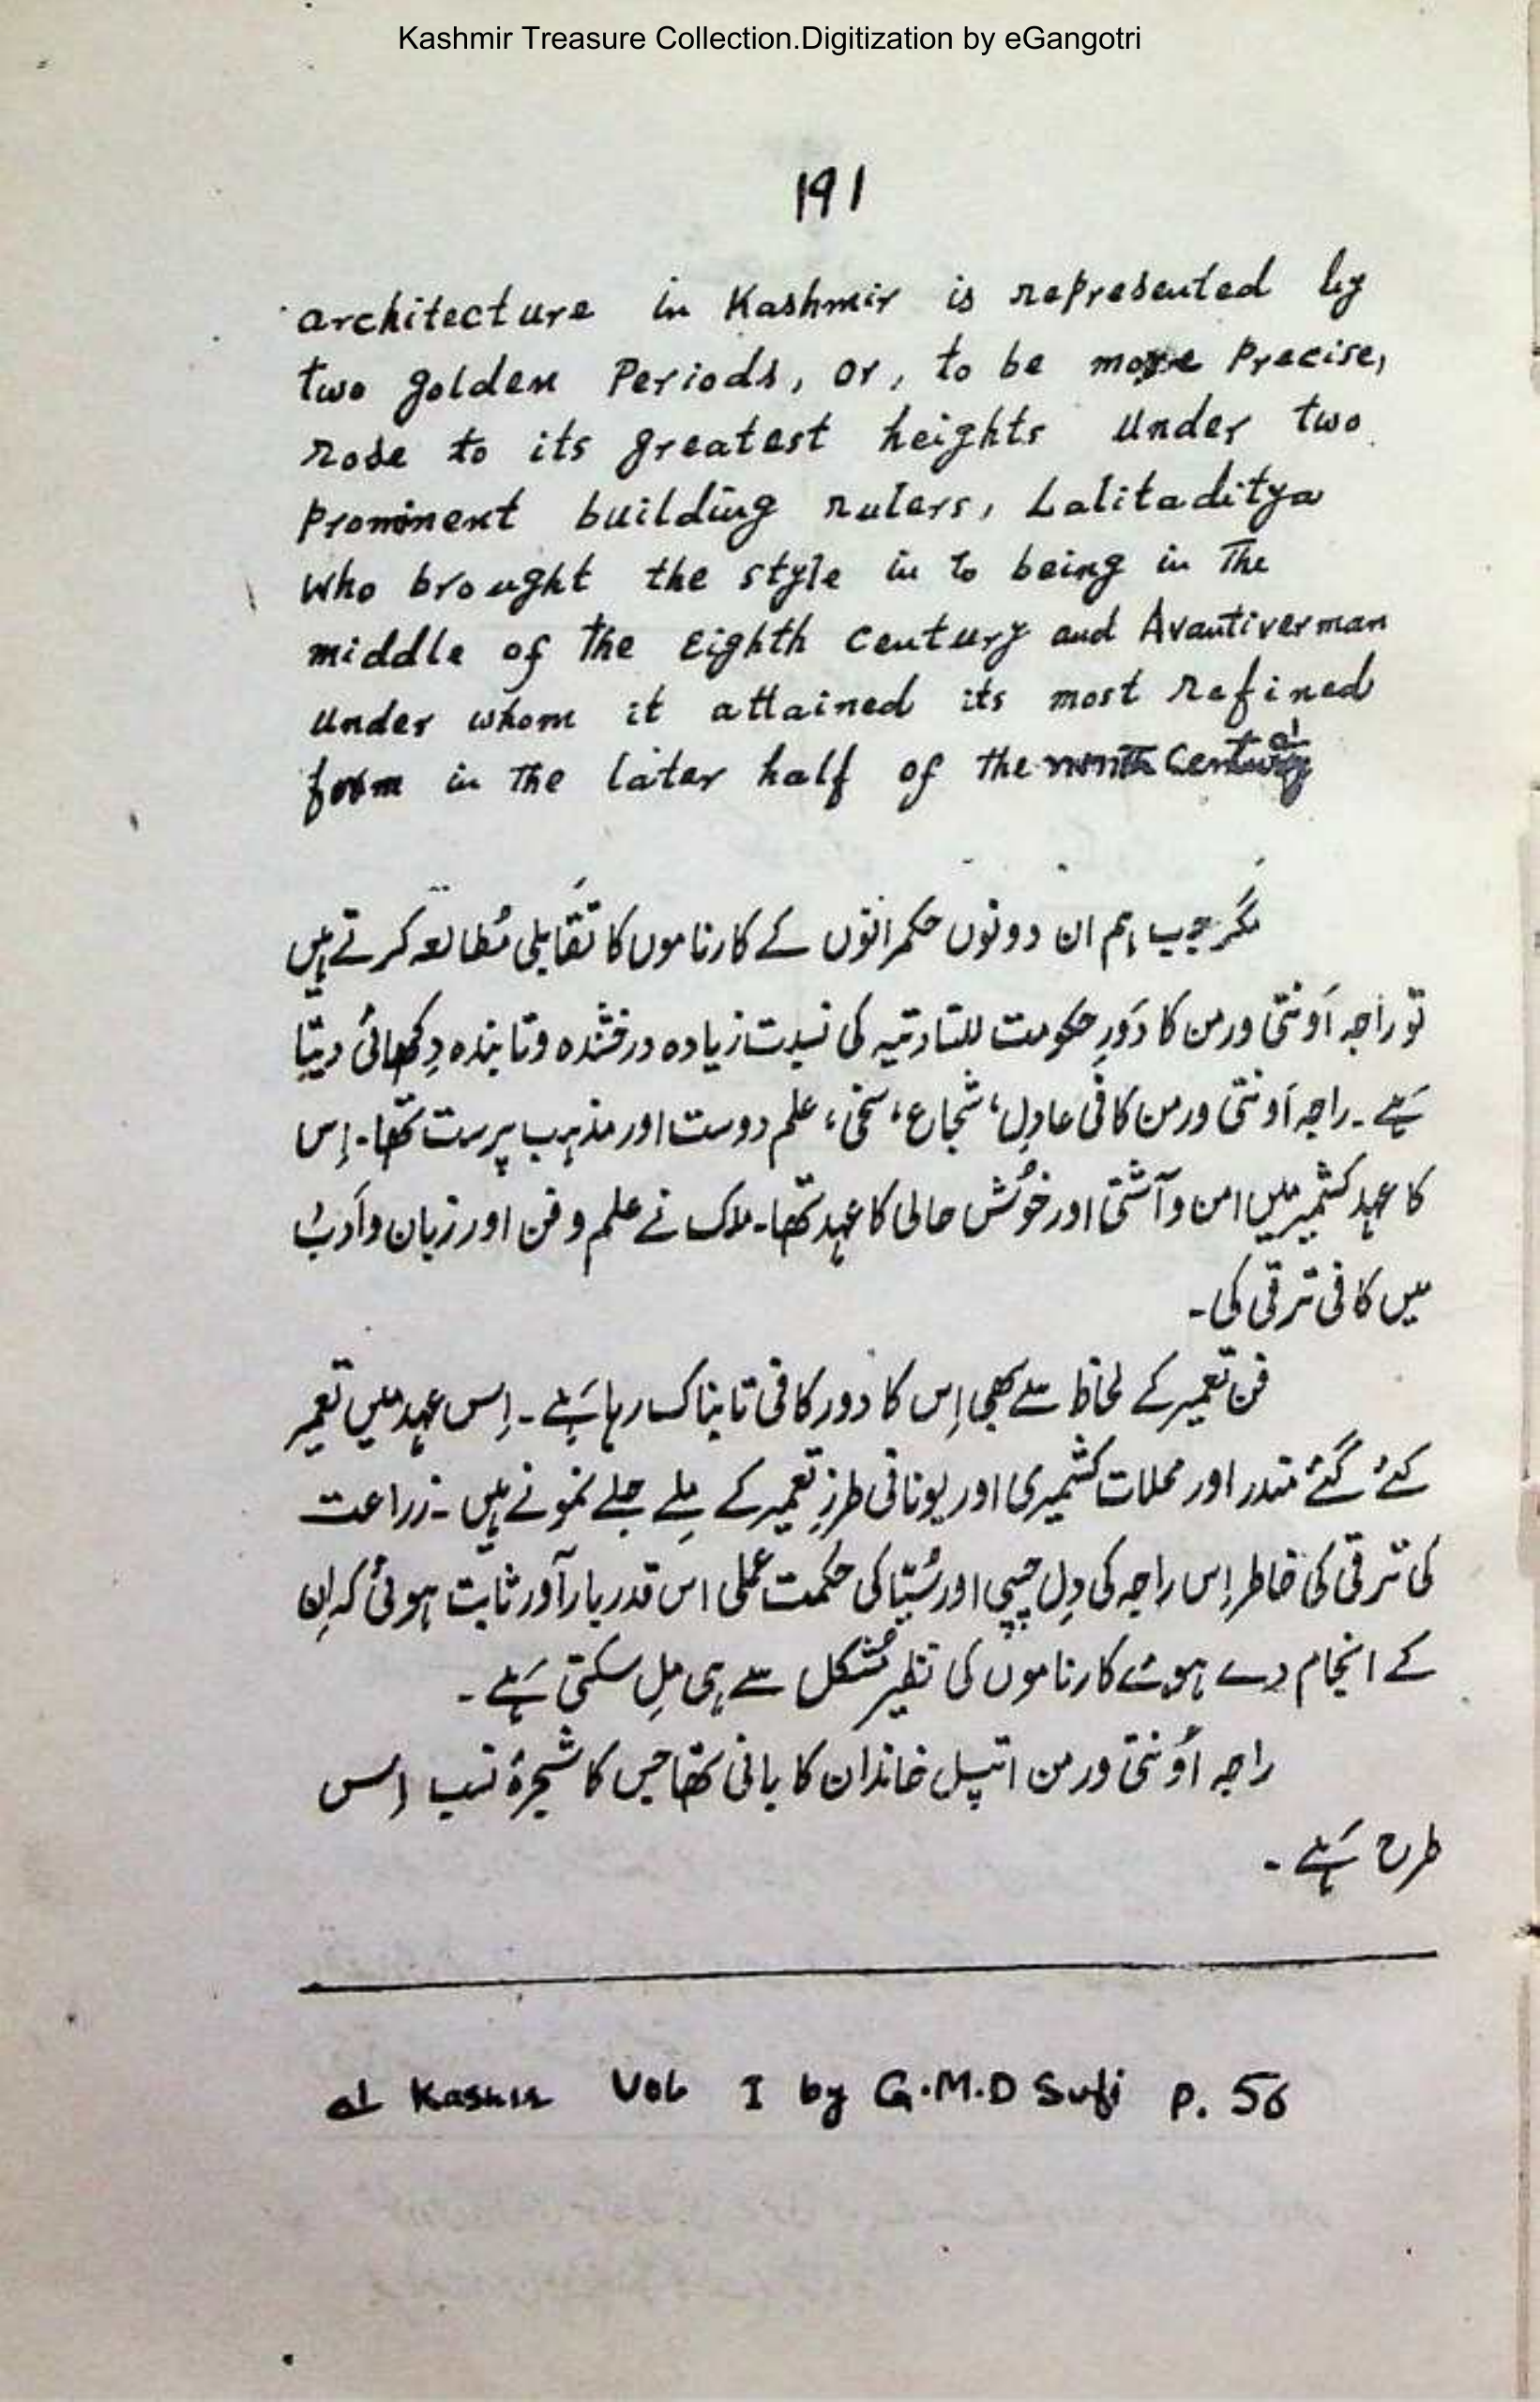 Kashmir Treasure Collection.Digitization by eGangotri
191
architecture in Kashmir is represented by
two golden Periods, or, to be more Precise,
rose to its greatest heights under two
prominent building rulers, Lalitaditya
who brought the style in to being in The
middle of The Eighth Century and Avantiverman
under whom it attained its most refined
form in The later half of the ninth Century
مگر جب ہم ان دونوں حکمرانوں کے کارناموں کا تقابلی مُطالعہ کرتے ہیں
تو راجہ اَونتی ورمن کا دَورِ حکومت للتادتیہ کی نسبت زیادہ درخشندہ و تابندہ دِکھائی دیتا
ہَے۔ راجہ اَونتی ورمن کافی عادِل، شجاع، سخی، علم دوست اور مذہب پرست تھا۔ اِس
کا عہد کشمیر میں امن و آشتی اور خُوش حالی کا عہد تھا۔ ملک نے علم و فن اور زبان و اَدب
میں کافی ترقی کی۔
فن تعمیر کے لحاظ سے بھی اِس کا دور کافی تابناک رہا ہَے۔ اِس عہد میں تعمیر
کئے گئے مندر اور محلات کشمیری اور یونانی طرزِ تعمیر کے مِلے جلے نمونے ہیں۔ زراعت
کی ترقی کی خاطر اِس راجہ کی دِل چسپی اور سُیّا کی حکمت عملی اس قدر بارآور ثابت ہوئی کہ اِن
کے انجام دے ہوئے کارناموں کی نظیر مُشکل سے ہی مِل سکتی ہَے۔
راجہ اَونتی ورمن اتپل خاندان کا بانی تھا جس کا شجرۂ نسب اِس
طرح ہَے۔
al Kashir Vol I by G.M.D Sufi P. 56